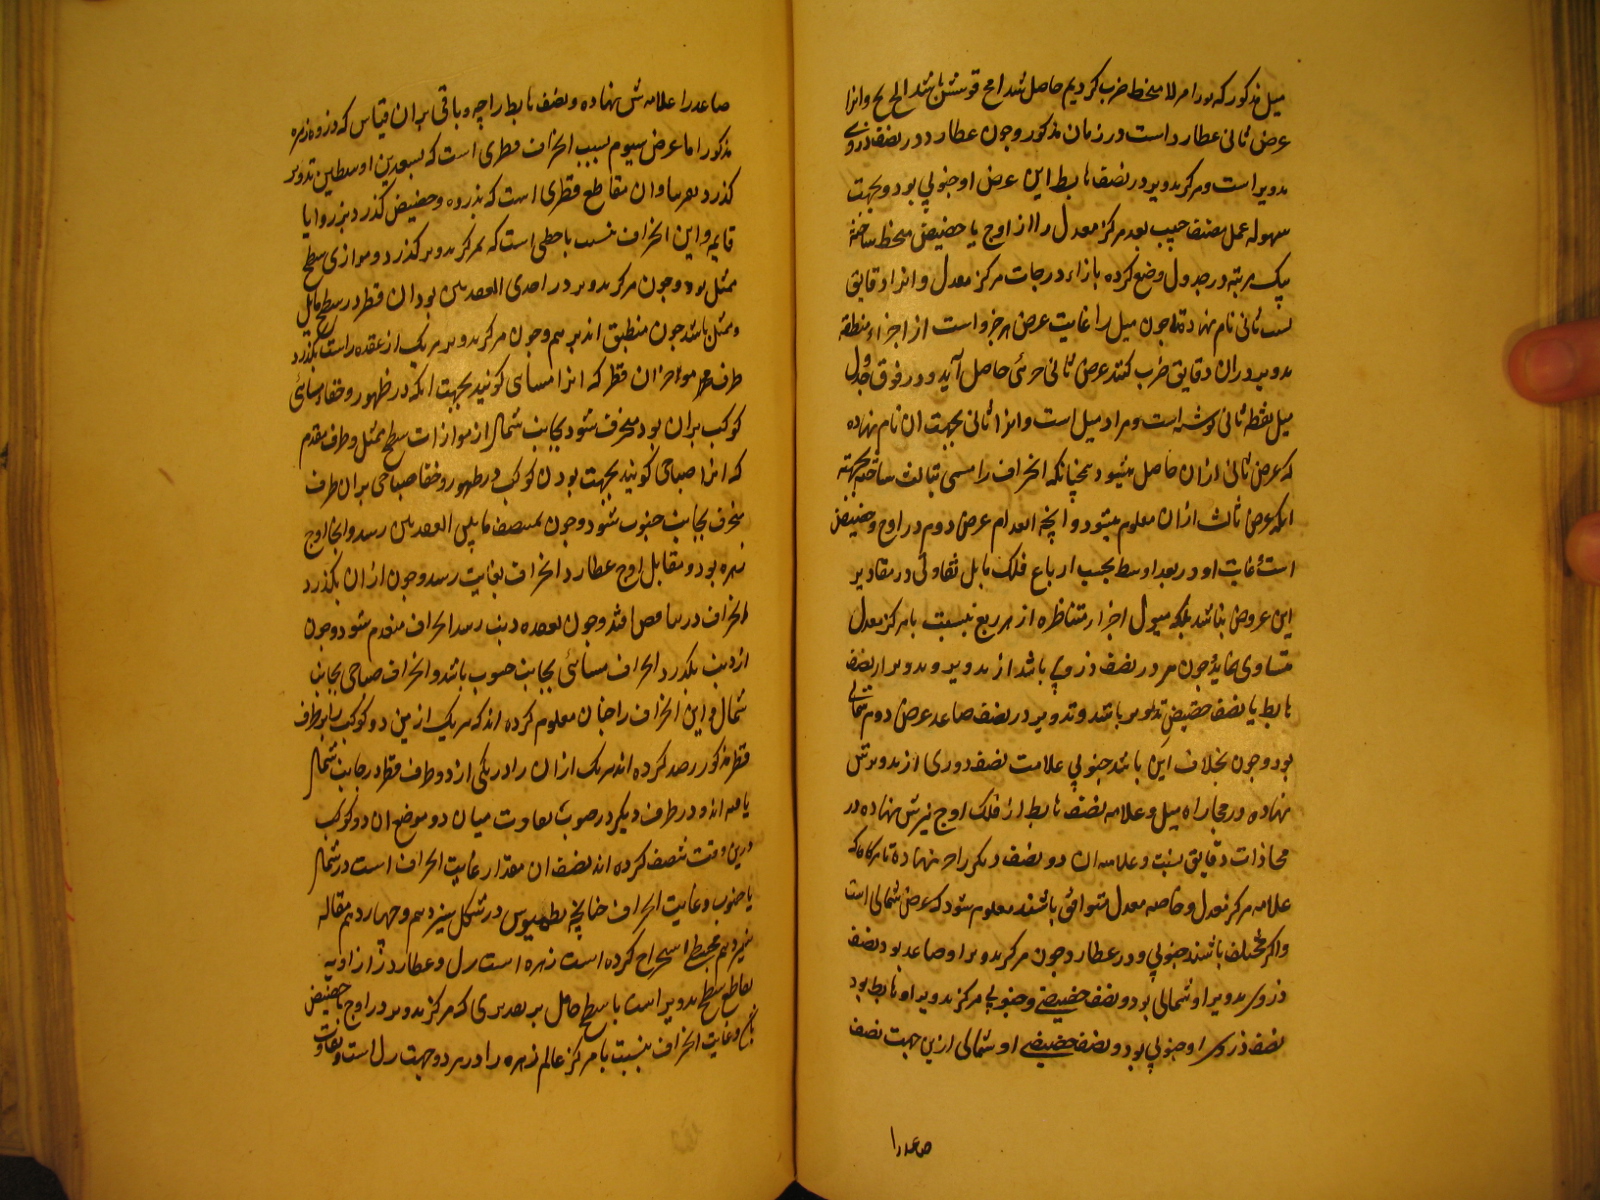 میل مذکور که بود امر لا منحط ضرب کردیم حاصل شد امح قوسش باشد الح لح و انرا
عرض ثانی عطارد است در زمان مذکور و چون عطارد در نصف ذروی
تدویر است و مرکز تدویر در نصف هابط این عرض او جنوبی بود و بجهت
سهوله عمل نصف جیب بعد مرکز معدل را از اوج یا حضیض منحط ساخته
یک مرتبه در جدول وضع کرده بازاء درجات مرکز معدل و انرا دقایق
نسب ثانی نام نهاده تا چون میل را غایت عرض هر جزو است از اجزاء منطقه
تدویر در ان دقایق ضرب کنند عرض ثانی جزئی حاصل آید و در فوق جدول
میل لفظه ثانی نوشته است و مراد میل است و انرا ثانی بجهت ان نام نهاده
که عرض ثانی ازان حاصل میشود همچنانکه انحراف را مسمی بثالث ساخته بجهته
انکه عرض ثالث ازان معلوم میشود و انچه انعدام عرض دوم در اوج و حضیض
است و غایت او در بعد اوسط بحسب ارباع فلک مایل تفاوتی در مقادیر
این عروض نباشد بلکه میول اجزاء متناظره از هر ربع بنسبت با مرکز معدل
متساوی نماید و چون مر در نصف ذروی باشد از تدویر و تدویر از نصف
هابط یا نصف حضیض تدویر باشد و تدویر در نصف صاعد عرض دوم شمالی
بود و چون بخلاف این باشد جنوبی علامت نصف ذروی از تدویر ش
نهاده در مجاراه میل و علامه نصف هابط از فلک اوج نیز ش نهاده در
محاذات دقایق نسبت و علامه ان دو نصف دیکر راحه نهاده تا هرکاه که
علامه مرکز معدل و خاصه معدل متوافق باشند معلوم شود که عرض شمالی است
واکر مختلف باشند جنوبی و در عطارد چون مرکز تدویر او صاعد بود نصف
ذروی تدویر او شمالی بود و نصف حضیضی و جنوبی مرکز تدویر او هابط بود
نصف ذروی او جنوبی بود و نصف حضیضی او شمالی ازین جهت نصف
صاعدرا
صاعدرا علامه ش نهاده و نصف هابط راحه و باقی بران قیاس که در وه زهره
مذکور اما عرض سیوم بسبب انحراف قطری است که ببعدین اوسطین تدویر
کذرد و ان مقاطع قطری است که بذروه و حضیض کذرد بزوایا
قایمه و این انحراف بنسبت با خطی است که بمرکز تدویر کذرد و موازی سطح
ممثل بود و چون مرکز تدویر در احدی العقدتین بود ان قطر در سطح مایل
و ممثل باشد چون منطبق اند بر هم و چون مرکز تدویر هر یک از عقده راست بکذرد
طرف موخر ان قطر که انرا مسای کویند بجهت انکه در ظهور و خفا مسائی
کوکب بران بود منحرف شود بجانب شمال از موازات سطح ممثل و طرف مقدم
که انرا صباحی کویند بجهت بودن کوکب در ظهور و خفا صباحی بران طرف
منحرف بجانب جنوب شود و چون بمنتصف مابین العقدتین رسد و انجا اوج
زهره بود و مقابل اوج عطارد انحراف بغایت رسد و چون ازان بکذرد
انحراف در تناقص افتد و چون بعقده ذنب رسد انحراف منعدم شود و چون
از ذنب بکذرد انحراف مسائی بجانب جنوب باشد و انحراف صباحی بجانب
شمال و این انحراف را چنان معلوم کرده اند که هر یک ازین دو کوکب را بر طرف
قطر مذکور رصد کرده اند هر یک ازان را در یکی از دو طرف قطر در جانب شمال
یافته اند و در طرف دیکر در صوب تفاوت میان دو موضع ان دو کوکب
درین وقت تنصف کرده اند نصف ان مقدار غایت انحراف است در شمال
یا جنوب و غایت انحراف چنانچه بطلمیوس در شکل سیزدهم و چهاردهم مقاله
سیزدهم مجسطی استخراج کرده است زهره است رل و عطارد ز از زاویه
تقاطع سطح تدویر است با سطح حامل بر تقدیری که مرکز تدویر در اوج یا حضیض
باشد و غایت انحراف بنسبت با مرکز عالم زهره را در هر دو جهت رل است و تفاوت